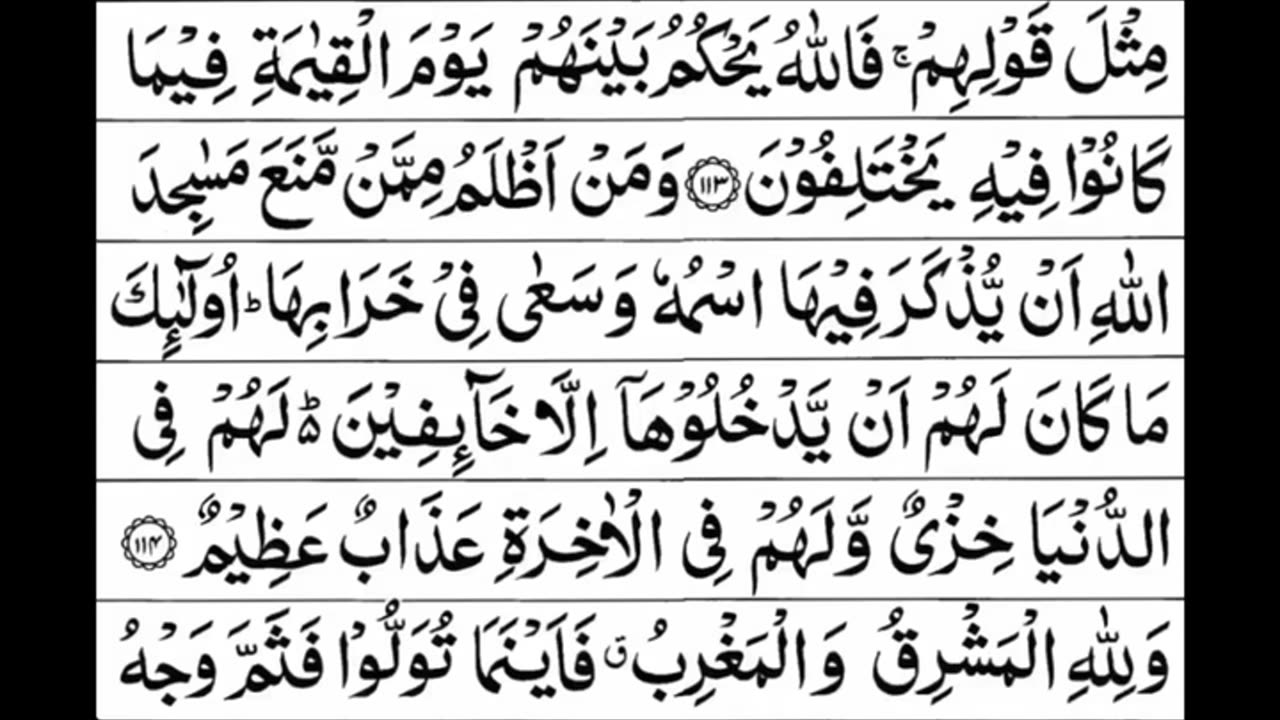 مِثْلَ قَوْلِهِمْ ۚ فَاللّٰهُ يَحْكُمُ بَيْنَهُمْ يَوْمَ الْقِيٰمَةِ فِيْمَا
كَانُوْا فِيْهِ يَخْتَلِفُوْنَ ۝۱۱۳ وَمَنْ اَظْلَمُ مِمَّنْ مَّنَعَ مَسٰجِدَ
اللّٰهِ اَنْ يُّذْكَرَ فِيْهَا اسْمُهٗ وَسَعٰى فِيْ خَرَابِهَا ؕ اُولٰٓئِكَ
مَا كَانَ لَهُمْ اَنْ يَّدْخُلُوْهَاۤ اِلَّا خَآئِفِيْنَ ۵ؕ لَهُمْ فِي
الدُّنْيَا خِزْىٌ وَّلَهُمْ فِي الْاٰخِرَةِ عَذَابٌ عَظِيْمٌ ۝۱۱۴
وَلِلّٰهِ الْمَشْرِقُ وَالْمَغْرِبُ ق فَاَيْنَمَا تُوَلُّوْا فَثَمَّ وَجْهُ